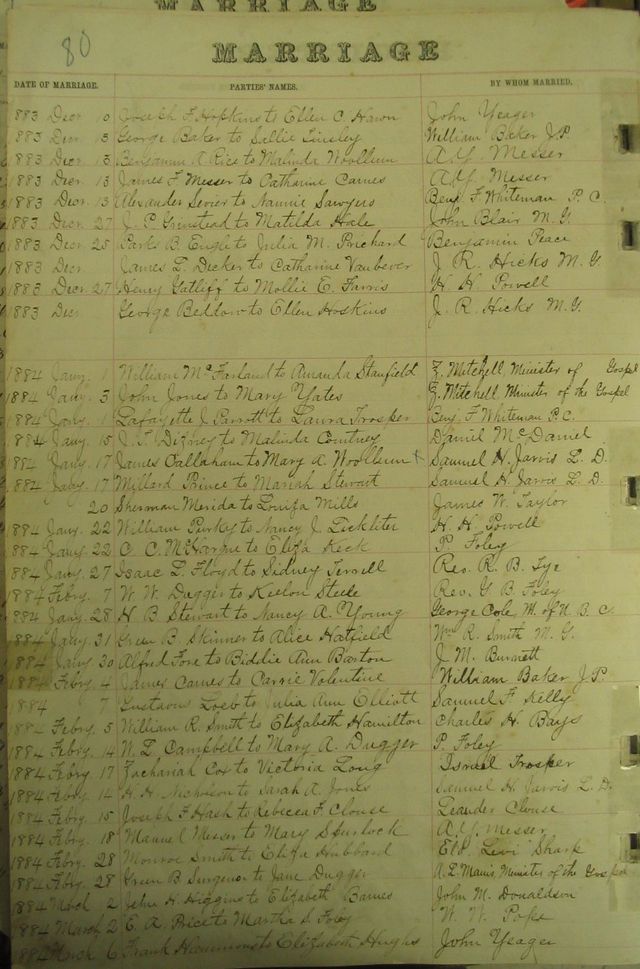 MARRIAGE
80
MARRIAGE
DATE OF MARRIAGE. PARTIES' NAMES. BY WHOM MARRIED.
883 Decr 0 Joseph F Hopkins to Ellen C. Hawn John Yeager
883 Decr 5 George Baker to Sallie Linsley William Baker J.P.
883 Decr. 13 Benjamin A Rice to Malinda Woollum A.Y. Messer
883 Decr. 13 James F Messer to Catharine Carnes A.Y. Messer
883 Decr. 13 Alexander Sevier to Nannie Sawyers Benj. F. Whiteman P. C.
883 Decr. 27 J. C. Grinstead to Matilda Hale John Blair M. G.
883 Decr. 25 Parks B. Engle to Julia M. Prichard Benjamin Peace
883 Decr James L. Decker to Catharine Vanbever J. R. Hicks M. G
883 Decr. 27 Henry Gatliff to Mollie E. Farris H. H. Powell
883 Dec George Beddow to Ellen Hoskins J. R. Hicks M.G.
1884 Jany. 1 William McFarland to Amanda Stanfield Z. Mitchell Minister of Gospel
1884 Jany. 3 John Jones to Mary Yates Z. Mitchell Minister of the Gospel
1884 Jany. 1 Lafayette J Parrott to Laura Trosper Benj. F Whiteman P.C.
884 Jany. 15 J. T. Dizney to Malinda Countney Daniel McDaniel
884 Jany. 17 James Callaham to Mary A. Woollum + Samuel H. Jarvis L. D.
884 Jany. 17 Millard Prince to Mariah Stewart Samuel H. Jarvis L. D.
20 Sherman Merida to Louisa Mills James W. Taylor
884 Jany. 22 William Purky to Nancy J. Lickliter H. H. Powell
884 Jany. 22 C. C. McHargue to Eliza Keck P. Foley
884 Jany. 27 Isaac L. Floyd to Sidney Terrell Rev. R. B. Tye
1884 Febry. 7 W. W. Dugger to Steele Rev. G. B. Foley
884 Jany. 28 H. B Stewart to Nancy A. Young George Cole M. of U. B. C.
1884 Jany 31 Green B Skinner to Alice Hatfield Wm R. Smith M. G.
1884 Jany. 30 Alfred Fore to Biddie Ann Barton J. M. Burnett
1884 Febry. 4 James Carnes to Carrie Valentine William Baker J.P.
1884 7 Gustavus to Julia Ann Elliott Samuel F. Kelly
1884 Febry. 5 William R. Smith to Elizabeth Hamilton Charles H. Bays
1884 Febry. 14 W. L. Campbell to Mary A. Dugger P. Foley
1884 Febry 17 Zachariah Cox to Victoria Long Israel Trosper
1884 Febry. 14 H. H. Nicholson to Sarah A. Jones Samuel H. Jarvis L. D.
1884 Febry. 15 Joseph F Hash to Rebecca F. Clouse Leander Clouse
1884 Febry. 18 Manuel Messer to Mary Spurlock A.Y. Messer
1884 Febry. 28 Monroe Smith to Eliza Hubbard Eld. Levi Sharp
1884 Febry. 28 Green B Surgener to Jane Dugger Minister of the Gospel
1884 March 2 John H. Higgins to Elizabeth Barnes John M. Donaldson
1884 March 2 E. A. Price to Martha S Foley W. W. Pope
1884 March 6 Frank Hammons to Elizabeth Hughs John Yeager